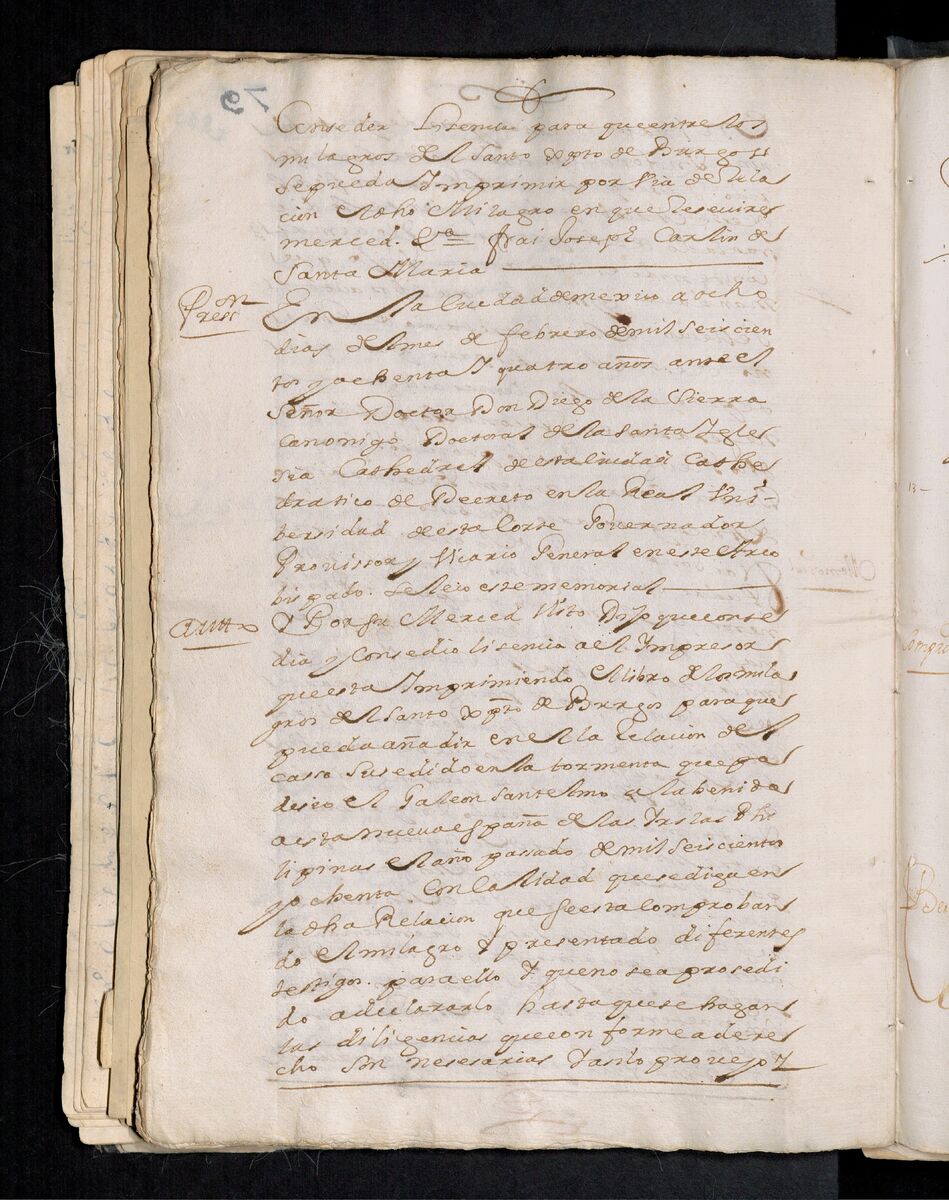 79
Conseder Lisencia para que entre los
milagros del Santo xpto de Burgos
se pueda Imprimir por via de Rela
cion el dho Milagro en que reseuire
merced. Va frai Joseph Carlin de
Santa Maria
Presn
En la Ciudad de mexico a ocho
dias del mes de febrero de mil seiscien
tos y ochenta Y quatro años ante el
Señor Doctor Don Diego de la Sierra
Canonigo Doctoral de la Santa Ygles
sia Cathedral de esta Ciudad Cathe
dratico de Decreto en la Real Vni
bersidad de esta Corte Gouernador
Prouissor y Vicario General en este Arco
bispado. Se leio este memorial
Autto
Y Por su Merced Visto Dijo que conse
dia y Consedio lisencia a el Ympresor
que esta Ymprimiendo el libro de los mila
gros del Santo xpto de Burgos para que
pueda añadir en el la Relacion del
casso susedido en la tormenta que pa
desio el Galeon Santelmo a la benida
a esta nueua españa de las Yslas Phi
lipinas el año passado de mil seiscientos
y ochenta Con calidad que se diga en
la dha Relacion que se esta Comproban
do el milagro Y presentado diferentes
testigos para ello Y que no sea prosedi
do a declararlo hasta que se hagan
las diligencias que conforme a dere
cho son nesesarias Y asi lo proveyo Y